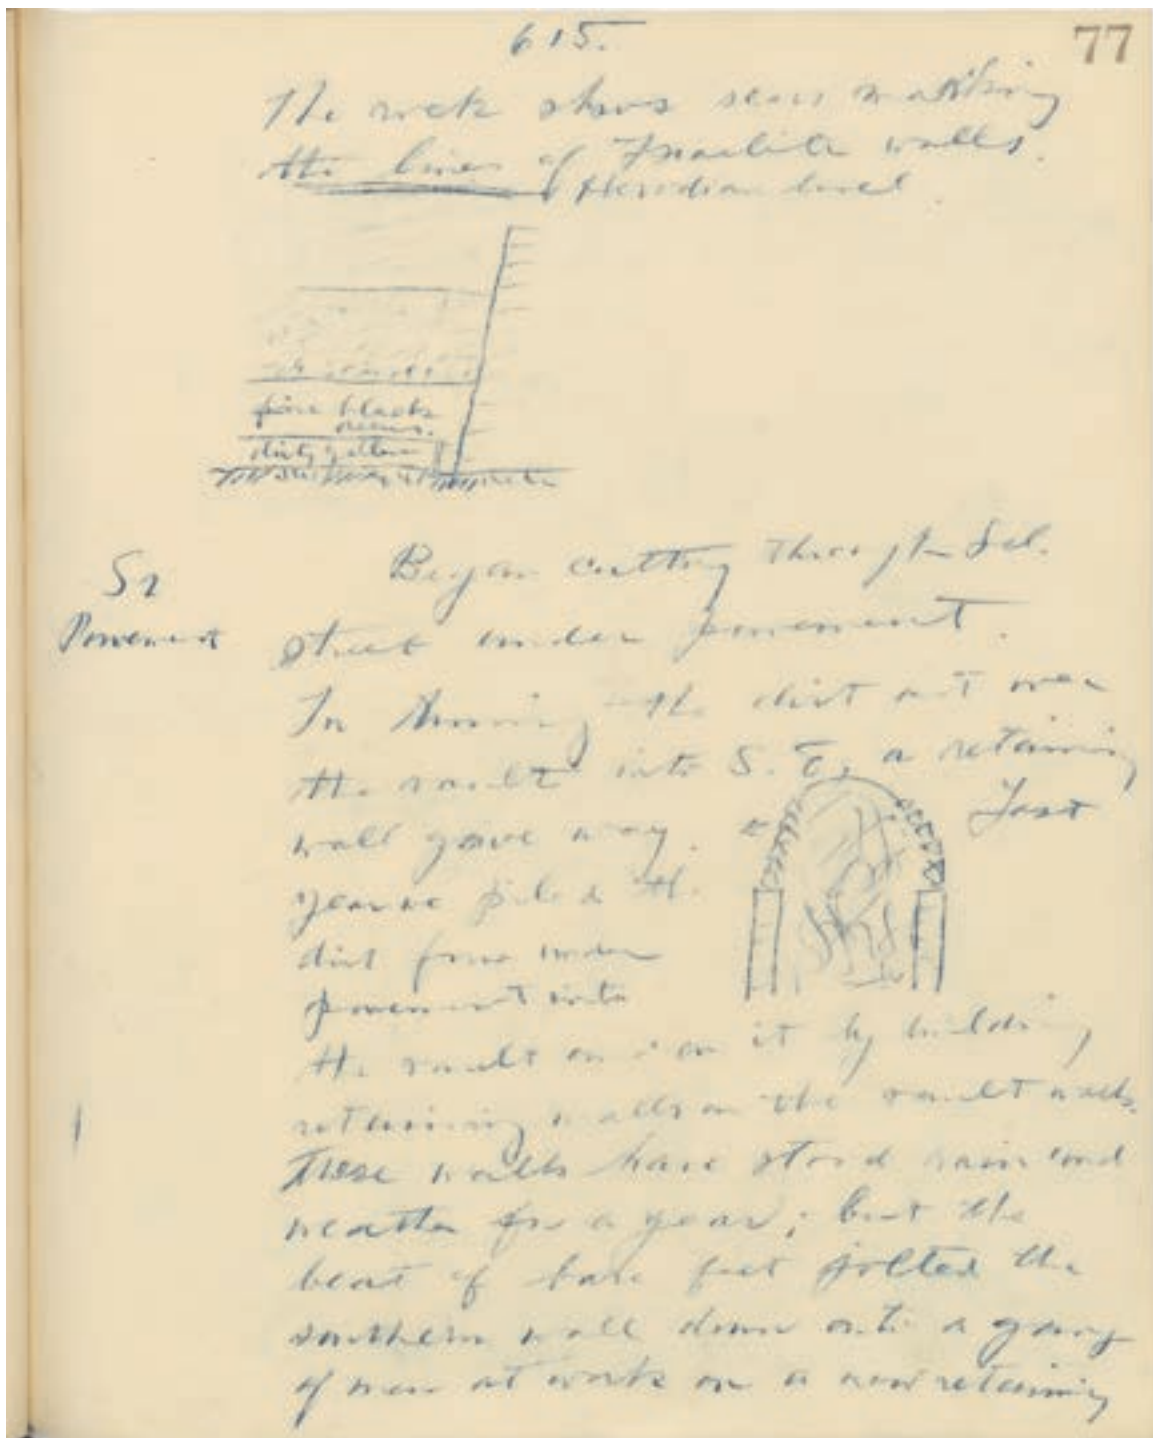 615.
77
The rock shows scars marking
the lines of Israelite walls.
Herodian level
fine black
debris.
dirty yellow
S2
Pavement
Began cutting through Sel.
street under pavement.
In throwing the dirt out over
the vault into S. E, a retaining
wall gave way. Last
year we piled the
dirt from under
pavement into
the vault and on it by building
retaining walls on the vault walls.
These walls have stood rain and
weather for a year; but the
beat of bare feet jolted the
southern wall down onto a gang
of men at work on a new retaining